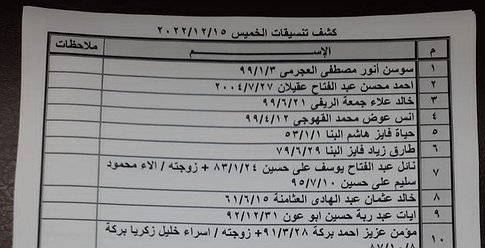 كشف تنسيقات الخميس ٢٠٢٢/١٢/١٥
م الإســـم ملاحظات
١ سوسن أنور مصطفى العجرمي ٩٩/١/٣
٢ احمد محسن عبد الفتاح عقيلان ٢٠٠٤/٧/٢٧
٣ خالد علاء جمعة الريفى ٩٩/٦/٢١
٤ انس عوض محمد القهوجي ٩٩/٤/١٢
٥ حياة فايز هاشم البنا ٥٣/١/١
٦ طارق زياد فايز البنا ٧٩/٦/٢٩
٧ نائل عبد الفتاح يوسف على حسين ٨٣/١/٢٤ + زوجته / الاء محمود
سليم على حسين ٩٥/٧/١٠
٨ خالد عثمان عبد الهادى العثامنة ٦١/٦/١٥
٩ ايات عبد ربة حسين ابو عون ٩٢/١٢/٣١
١٠ مؤمن عزيز احمد بركة ٩١/٣/٢٨+ زوجته / اسراء خليل زكريا بركة